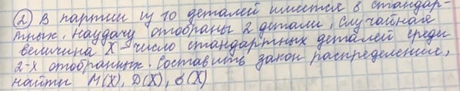 ② В партии из 10 деталей имеется 8 стандар-
тных. Наудачу отобраны 2 детали. Случайная
величина X - число стандартных деталей среди
2-х отобранных. Составить закон распределения,
найти M(X), D(X), б(X)